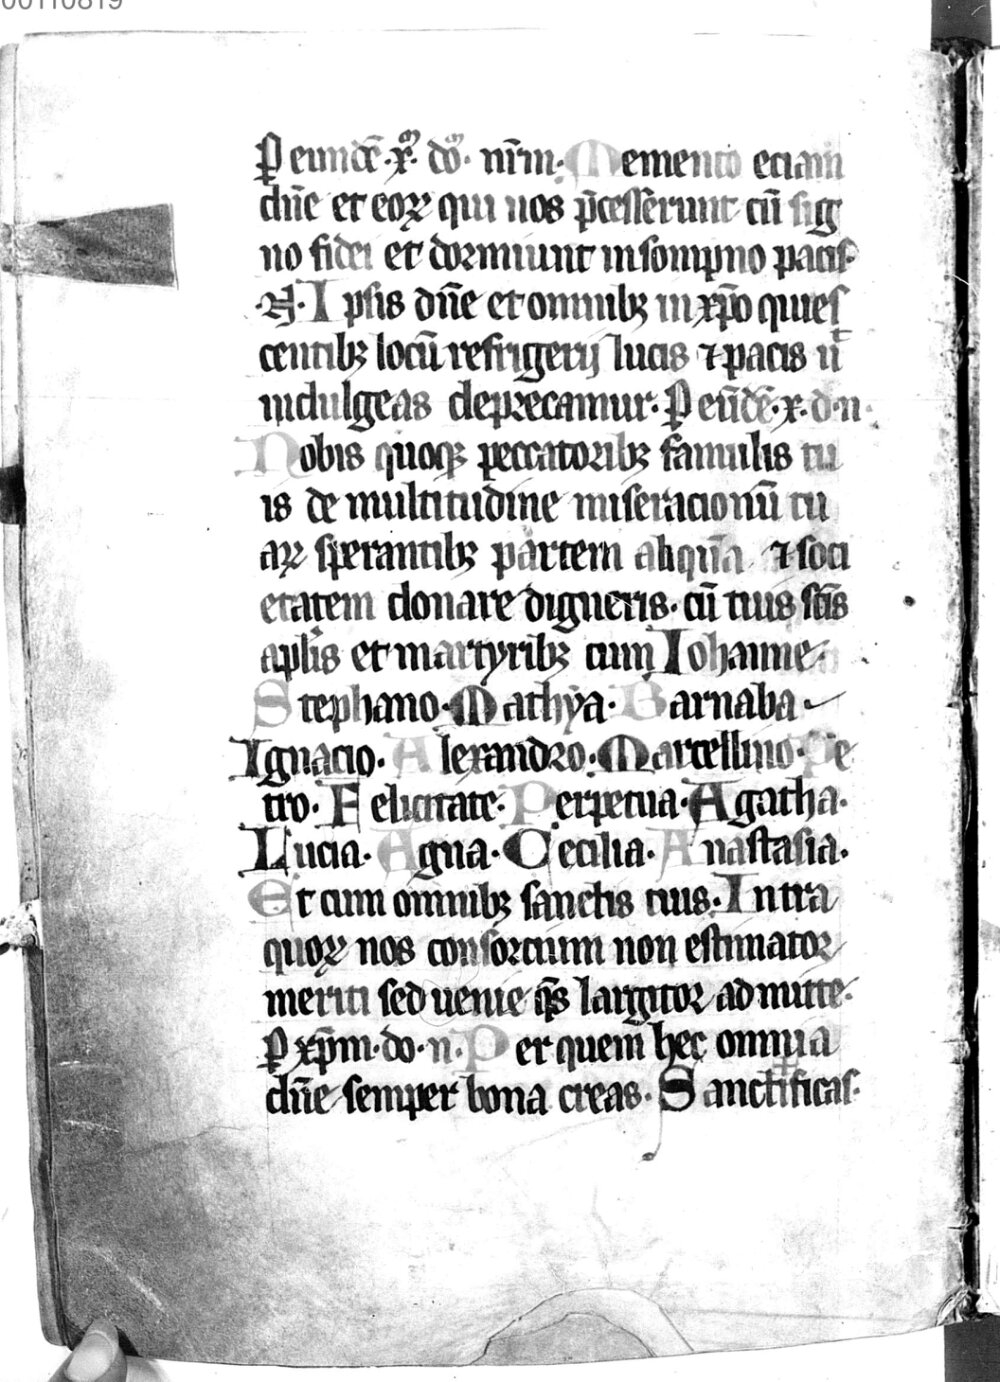 00110819
ꝑ eundē·xͫ· dōͫ· nr̄m· Memento eciam
dn̄e et eoꝝ qui nos p̄cesserunt cū sig
no fidei et dormiunt in sompno pacis·
·N· Ipsis dn̄e et omnibꝫ in xp̄o quies
centibꝫ locū refrigerij lucis ⁊ pacis uͭ
indulgeas deprecamur· ꝑ eūdē·x·d·n·
Nobis quoqꝫ peccatoribꝫ famulis tu
is de multitudine miseracionū tu
aꝝ sperantibꝫ partem aliquā ⁊ soci
etatem donare digneris· cū tuis sc̄is
apl̄is et martyribꝫ cum Iohanne·
Stephano· Mathya· Barnaba·
Ignacio· Alexandro· Marcellino· Pe
tro· Felicitate· Perpetua· Agatha·
Lucia· Agna· Cecilia· Anastasia·
Et cum omnibꝫ sanctis tuis· Intra
quoꝝ nos consorcium non estimator
meriti sed uenie q̄s largitor admitte·
ꝑ xp̄m·do·n· Per quem hec omnia
dn̄e semper bona creas· Sanctificas·